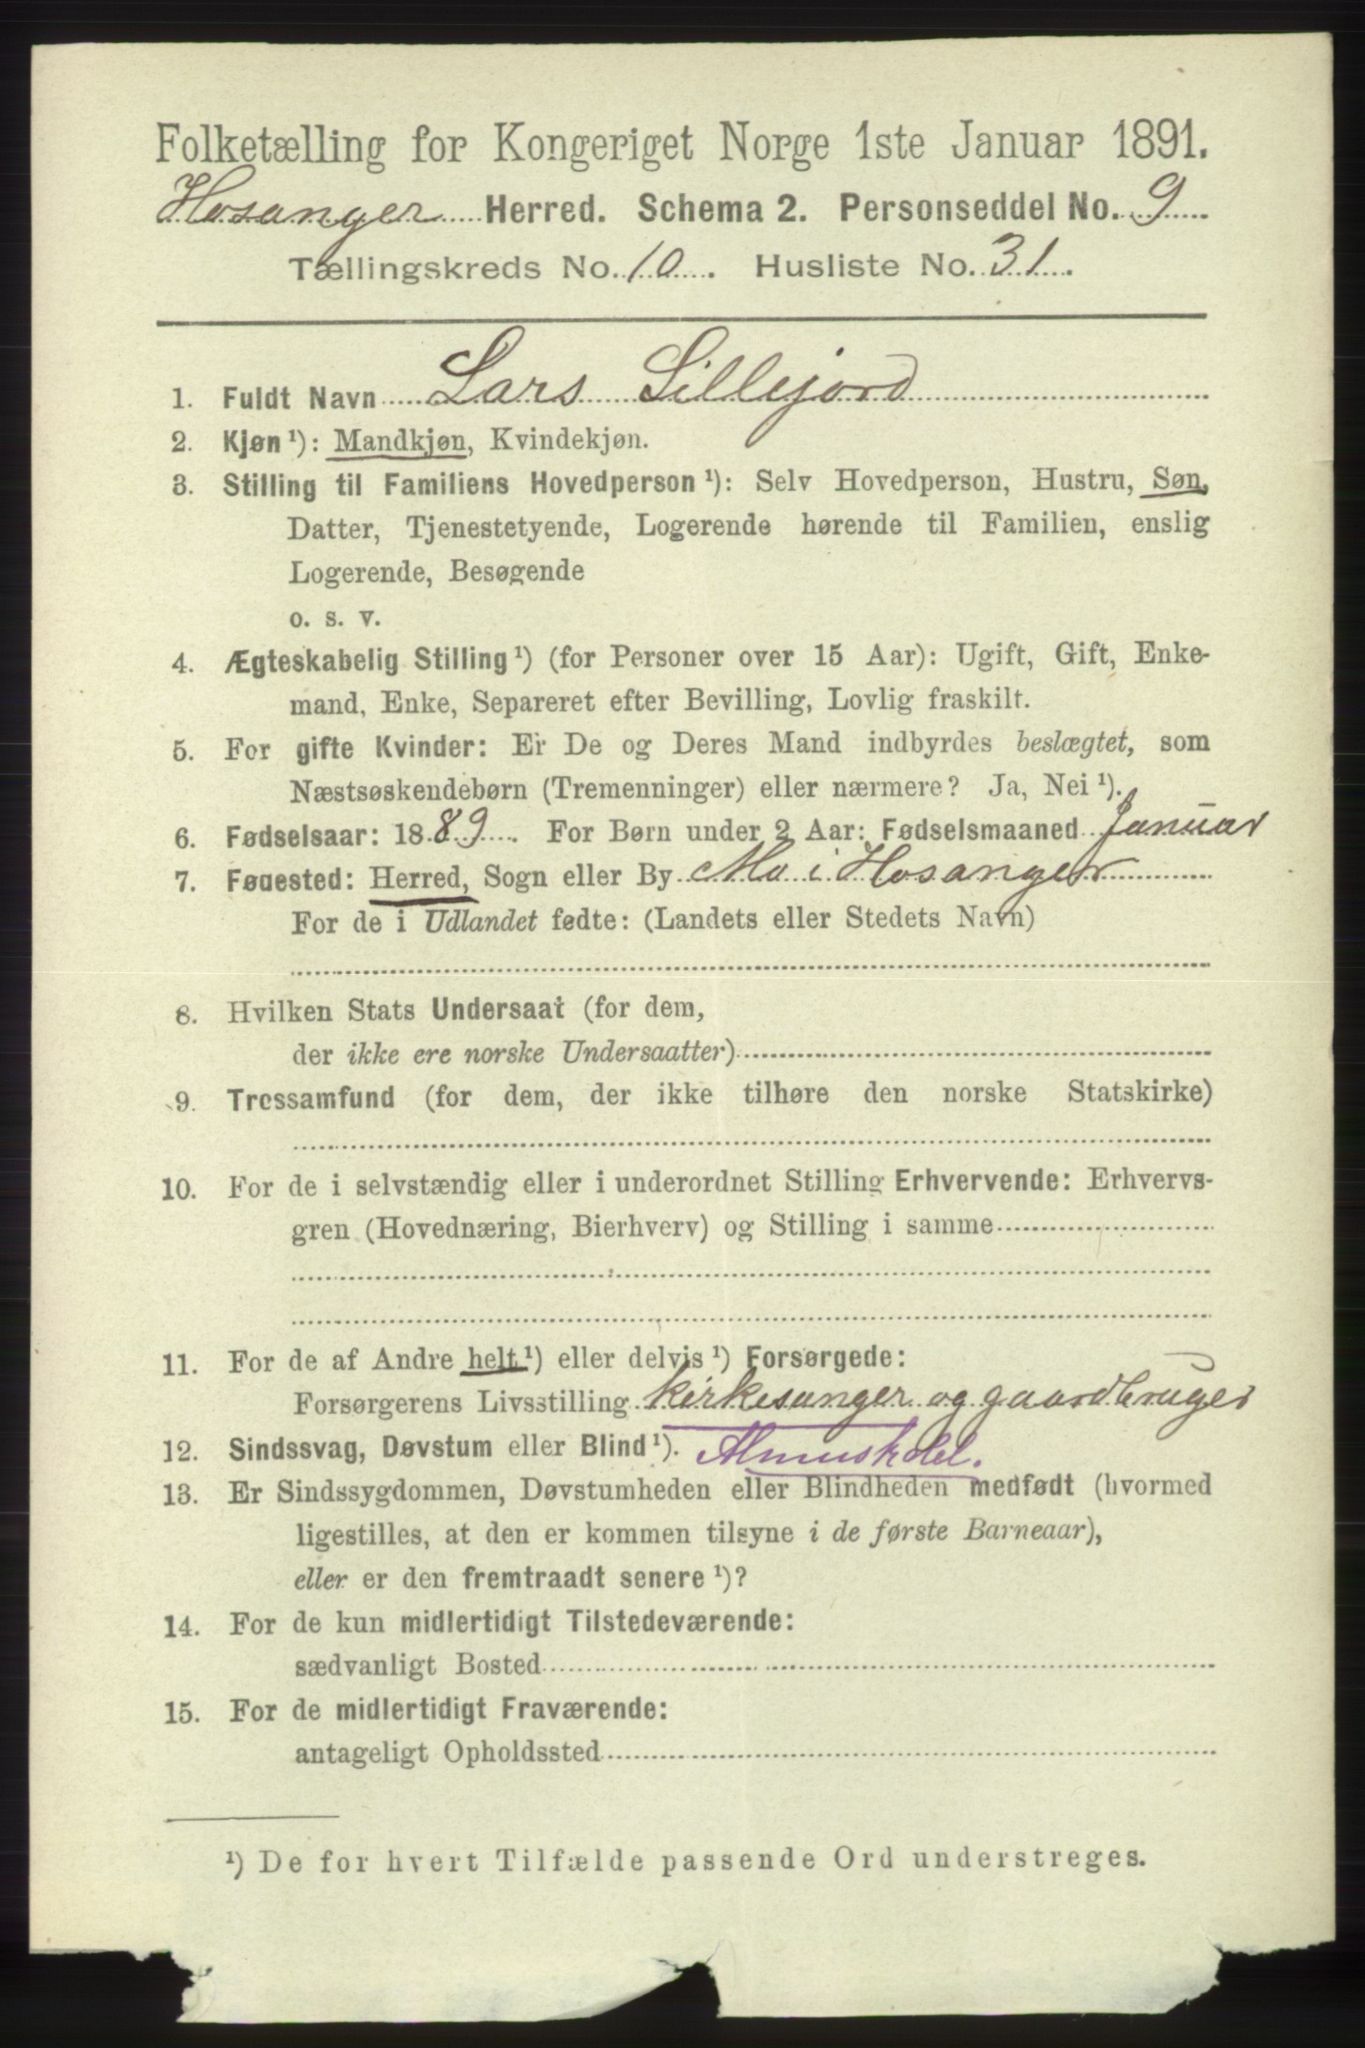 Folketælling for Kongeriget Norge 1ste Januar 1891.
Hosanger Herred. Schema 2. Personseddel No. 9
Tællingskreds No. 10. Husliste No. 31.
1. Fuldt Navn Lars Lillejord
2. Kjøn¹): Mandkjøn, Kvindekjøn.
3. Stilling til Familiens Hovedperson¹): Selv Hovedperson, Hustru, Søn,
Datter, Tjenestetyende, Logerende hørende til Familien, enslig
Logerende, Besøgende
o. s. v.
4. Ægteskabelig Stilling¹) (for Personer over 15 Aar): Ugift, Gift, Enke-
mand, Enke, Separeret efter Bevilling, Lovlig fraskilt.
5. For gifte Kvinder: Er De og Deres Mand indbyrdes beslægtet, som
Næstsøskendebørn (Tremenninger) eller nærmere? Ja, Nei¹).
6. Fødselsaar: 1889. For Børn under 2 Aar: Fødselsmaaned Januar
7. Fødested: Herred, Sogn eller By Mo i Hosanger
For de i Udlandet fødte: (Landets eller Stedets Navn)
8. Hvilken Stats Undersaat (for dem,
der ikke ere norske Undersaatter)
9. Trossamfund (for dem, der ikke tilhøre den norske Statskirke)
10. For de i selvstændig eller i underordnet Stilling Erhvervende: Erhvervs-
gren (Hovednæring, Bierhverv) og Stilling i samme
11. For de af Andre helt¹) eller delvis¹) Forsørgede:
Forsørgerens Livsstilling kirkesanger og gaardbruger
12. Sindssvag, Døvstum eller Blind¹). Almueskolel.
13. Er Sindssygdommen, Døvstumheden eller Blindheden medfødt (hvormed
ligestilles, at den er kommen tilsyne i de første Barneaar),
eller er den fremtraadt senere¹)?
14. For de kun midlertidigt Tilstedeværende:
sædvanligt Bosted
15. For de midlertidigt Fraværende:
antageligt Opholdssted
¹) De for hvert Tilfælde passende Ord understreges.